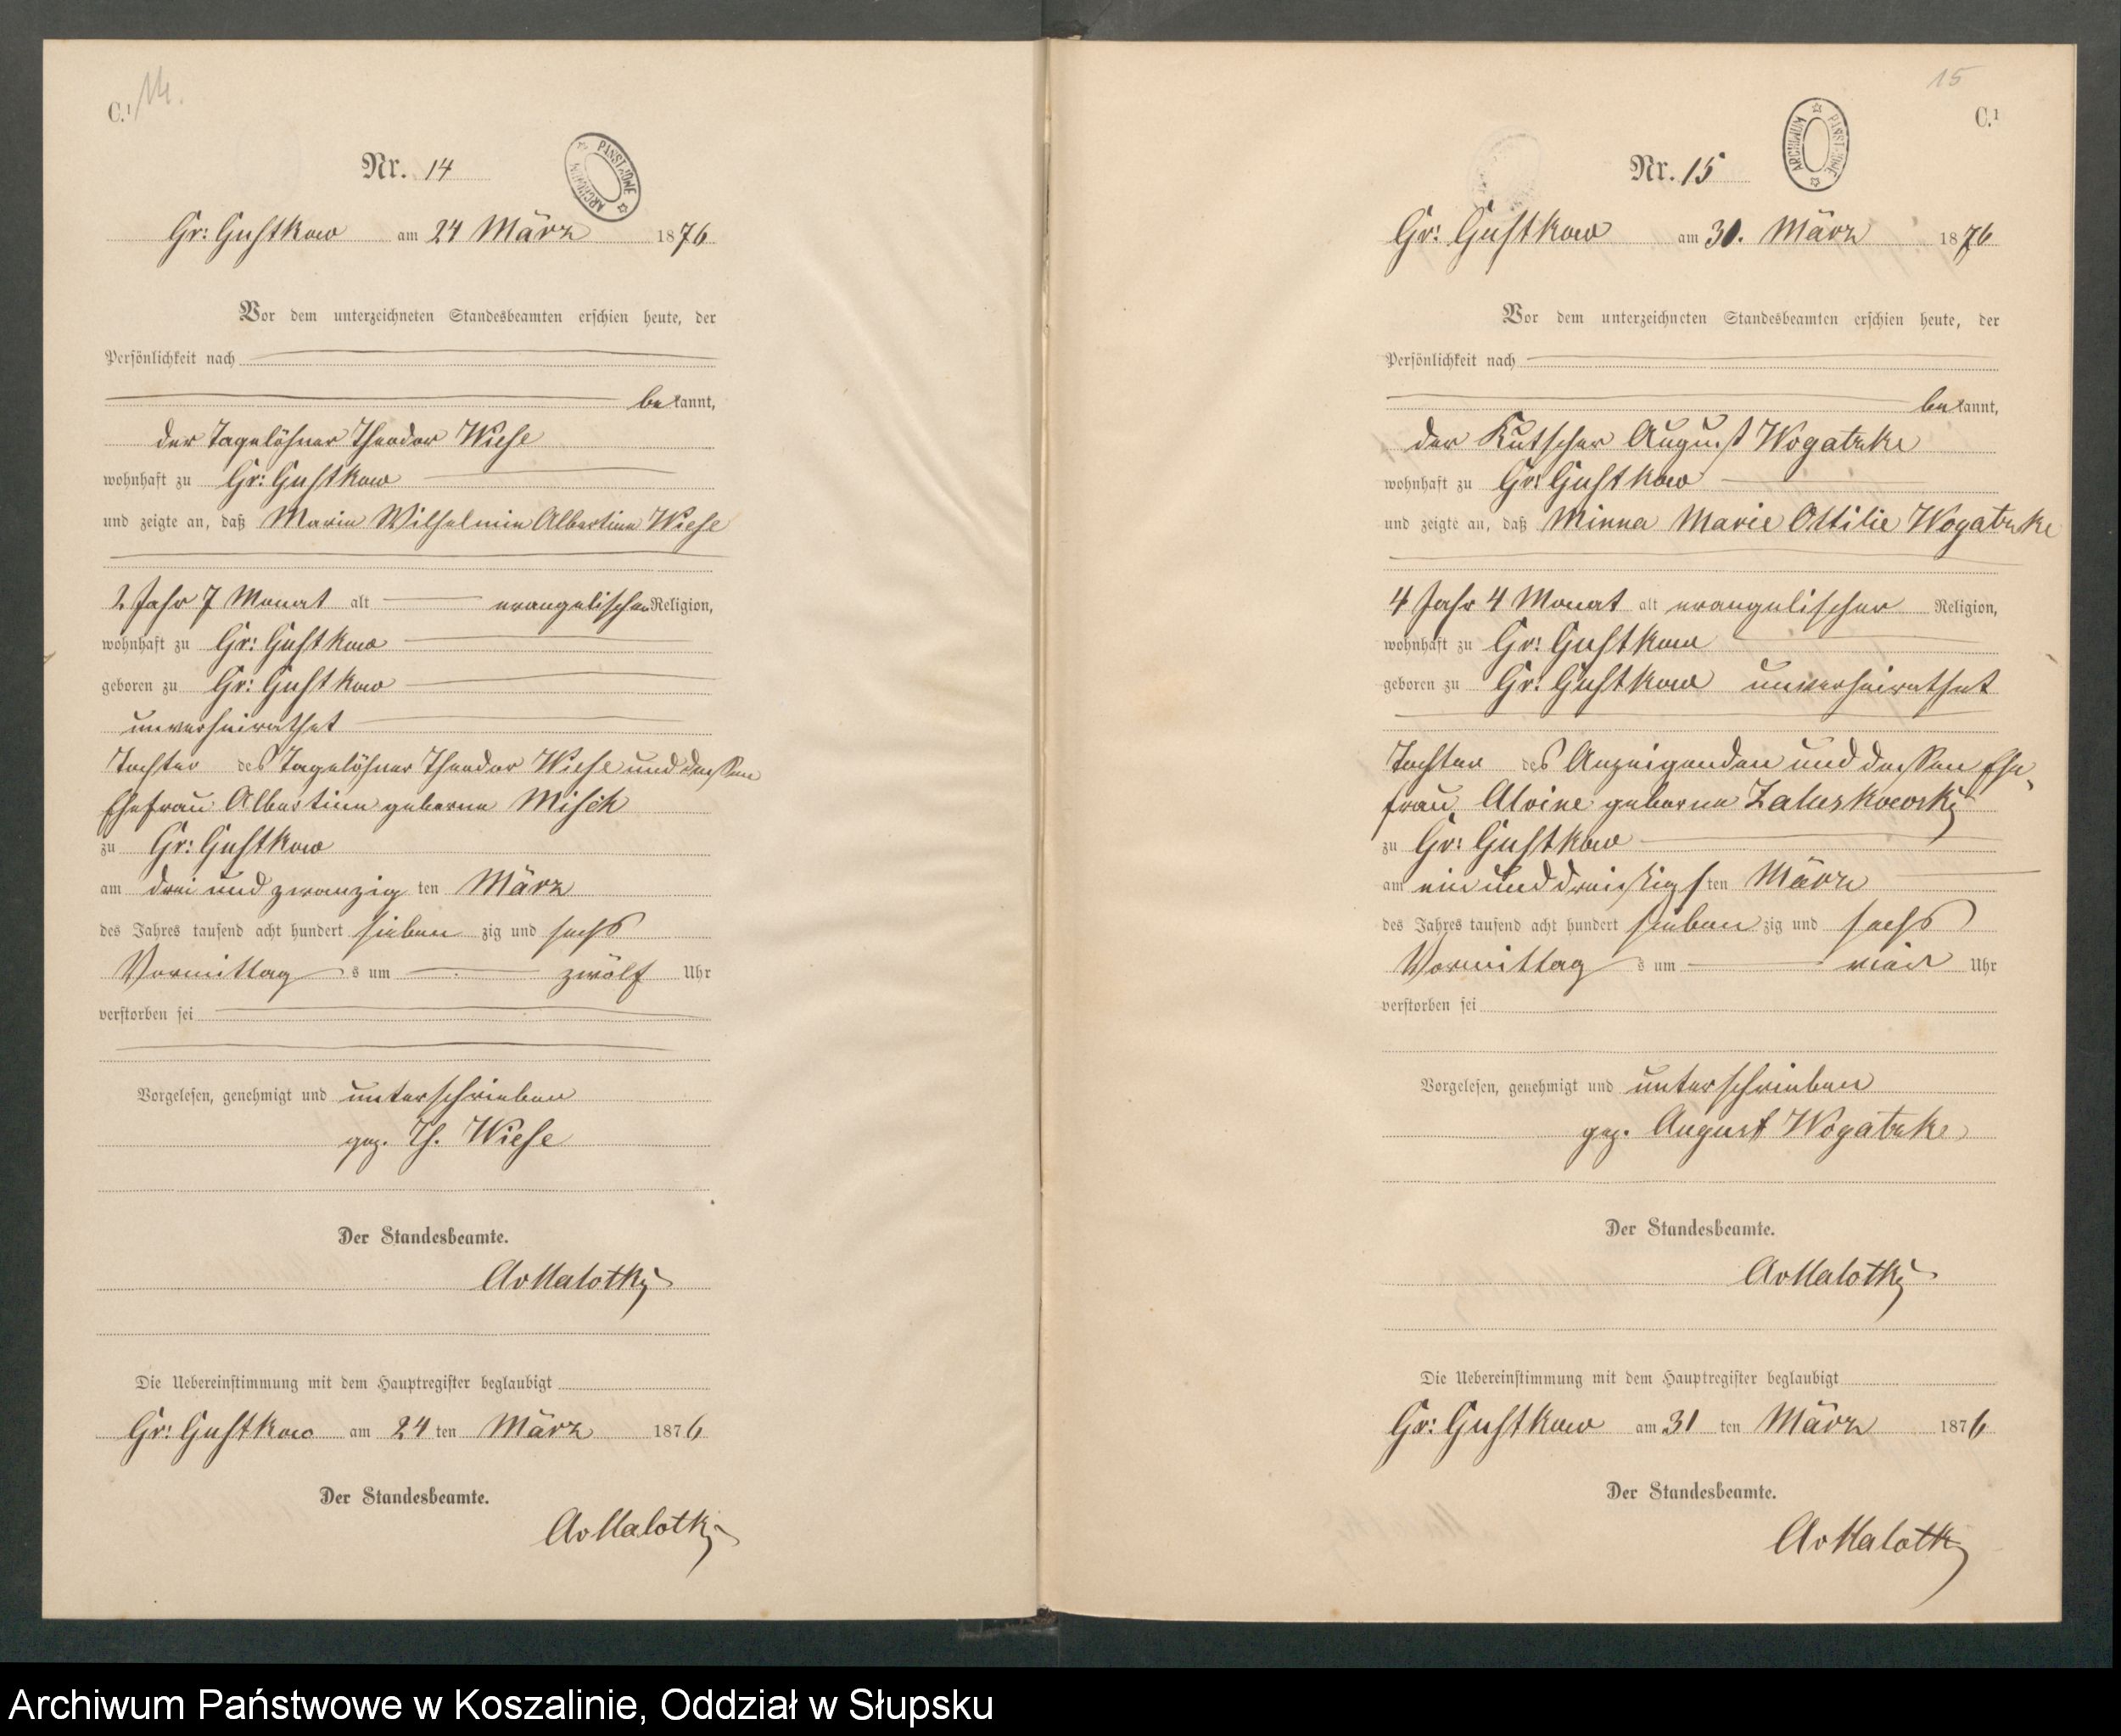 C.¹ 14.
Nr. 14
PAŃSTWOWE ARCHIWUM
Gr: Gustkow am 24 März 1876
Vor dem unterzeichneten Standesbeamten erschien heute, der
Persönlichkeit nach
be kannt,
der Tagelöhner Theodor Wiese
wohnhaft zu Gr: Gustkow
und zeigte an, daß Marie Wilhelmine Albertine Wiese
2 Jahr 7 Monat alt evangelischer Religion,
wohnhaft zu Gr: Gustkow
geboren zu Gr: Gustkow
unverheirathet
Tochter des Tagelöhner Theodor Wiese und dessen
Ehefrau Albertine geborne Misch
zu Gr: Gustkow
am drei und zwanzig ten März
des Jahres tausend acht hundert sieben zig und sechs
Vormittag s um zwölf Uhr
verstorben sei
Vorgelesen, genehmigt und unterschrieben
gez. Th. Wiese
Der Standesbeamte.
AvMalotky
Die Uebereinstimmung mit dem Hauptregister beglaubigt
Gr: Gustkow am 24 ten März 1876
Der Standesbeamte.
AvMalotky
15
C.¹
Nr. 15
PAŃSTWOWE ARCHIWUM
Gr: Gustkow am 30. März 1876
Vor dem unterzeichneten Standesbeamten erschien heute, der
Persönlichkeit nach
be kannt,
der Kutscher August Wogatzke
wohnhaft zu Gr: Gustkow
und zeigte an, daß Minna Marie Ottilie Wogatzke
4 Jahr 4 Monat alt evangelischer Religion,
wohnhaft zu Gr: Gustkow
geboren zu Gr: Gustkow unverheirathet
Tochter des Anzeigenden und dessen Ehe-
frau Alvine geborne Zaluskowsky
zu Gr: Gustkow
am ein und dreißigs ten März
des Jahres tausend acht hundert sieben zig und sechs
Vormittag s um vier Uhr
verstorben sei
Vorgelesen, genehmigt und unterschrieben
gez. August Wogatzke
Der Standesbeamte.
AvMalotky
Die Uebereinstimmung mit dem Hauptregister beglaubigt
Gr: Gustkow am 31 ten März 1876
Der Standesbeamte.
AvMalotky
Archiwum Państwowe w Koszalinie, Oddział w Słupsku